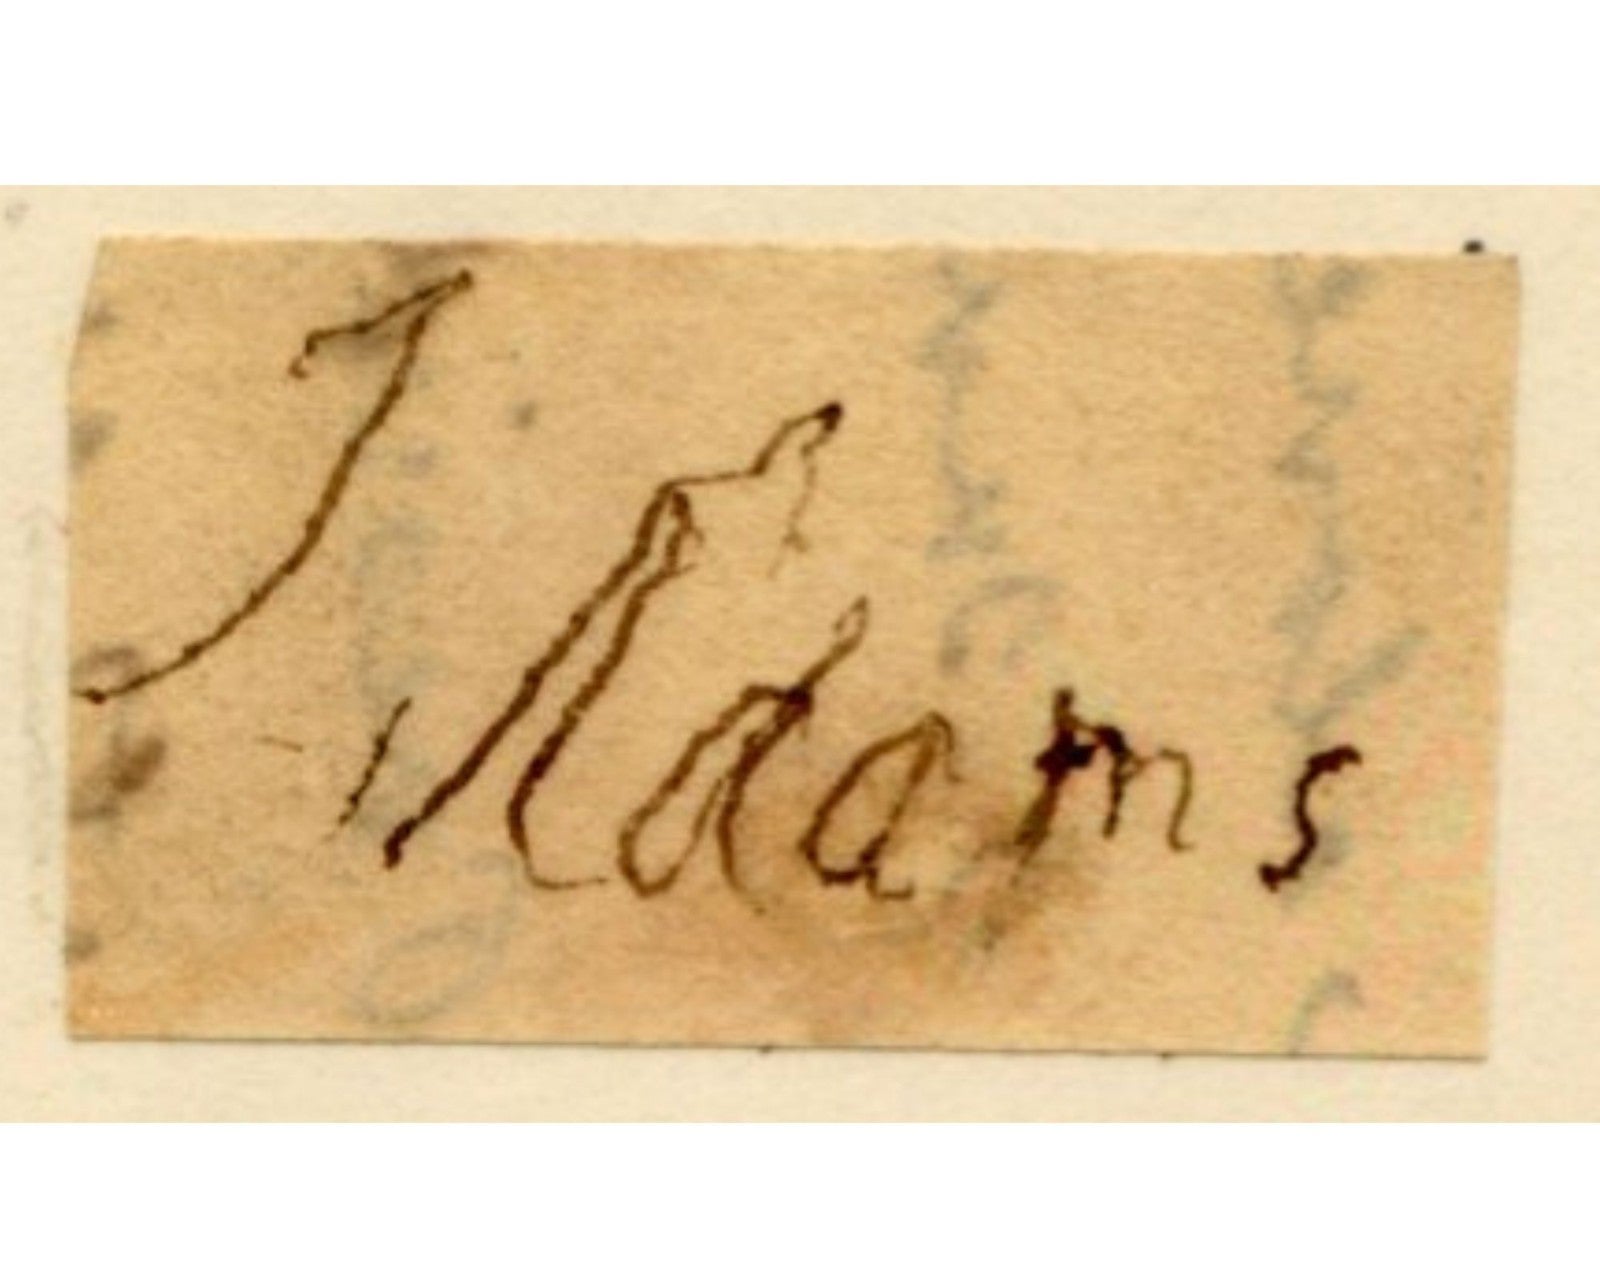 J Adams